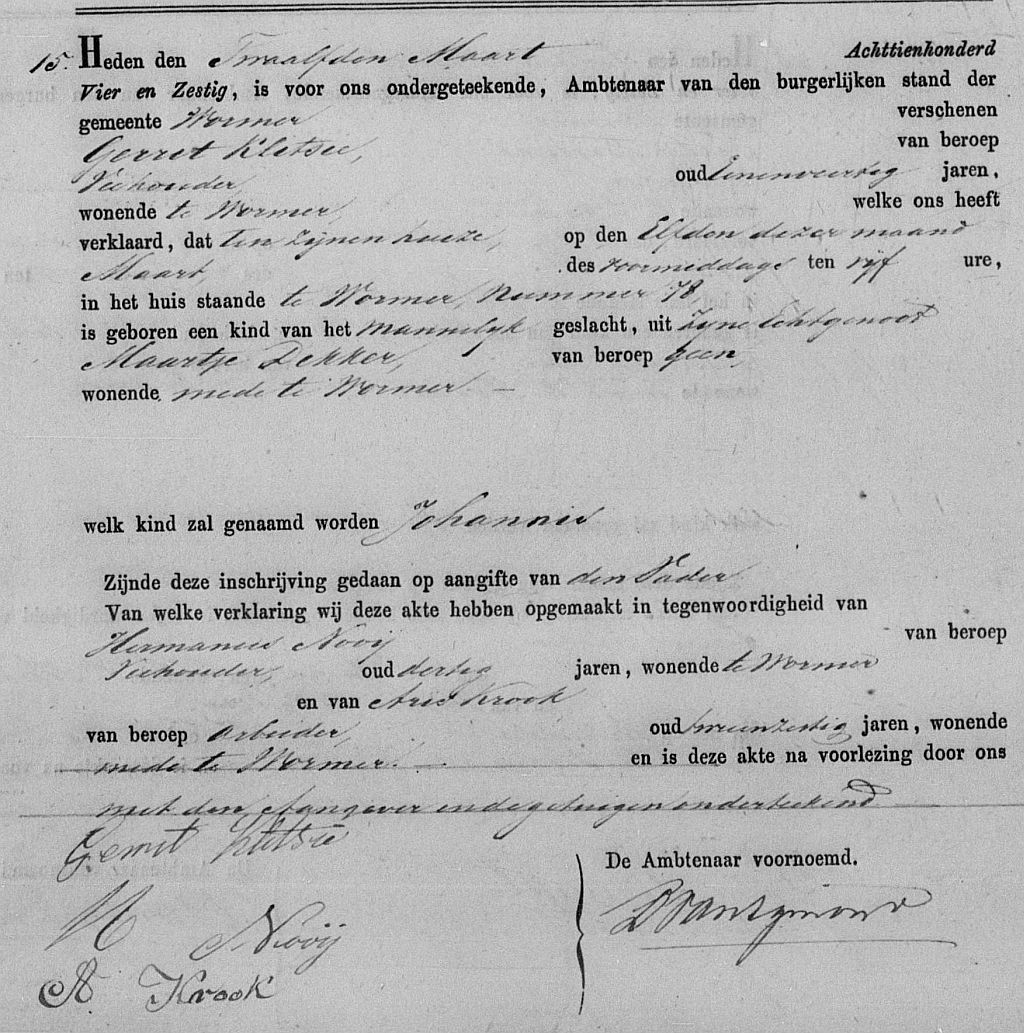 15. Heden den Twaalfden Maart Achttienhonderd
Vier en Zestig, is voor ons ondergeteekende, Ambtenaar van den burgerlijken stand der
gemeente Wormer verschenen
Gerret Kletsie, van beroep
Veehouder, oud eenenveertig jaren,
wonende te Wormer, welke ons heeft
verklaard, dat ten zijnen huize, op den Elfden dezer maand
Maart, des voormiddags ten vijf ure,
in het huis staande te Wormer, Nummer 78
is geboren een kind van het Mannelijk geslacht, uit Zijne Echtgenoot
Maartje Dekker, van beroep geen,
wonende mede te Wormer —
welk kind zal genaamd worden Johannis
Zijnde deze inschrijving gedaan op aangifte van den Vader
Van welke verklaring wij deze akte hebben opgemaakt in tegenwoordigheid van
Hermanus Nooij van beroep
Veehouder, oud dertig jaren, wonende te Wormer
en van Arie Krook
van beroep Arbeider, oud tweenzestig jaren, wonende
mede te Wormer. — en is deze akte na voorlezing door ons
met den Aangever en de getuigen onderteekend —
Gerrit Kletsie
De Ambtenaar voornoemd.
N Nooij
A Krook